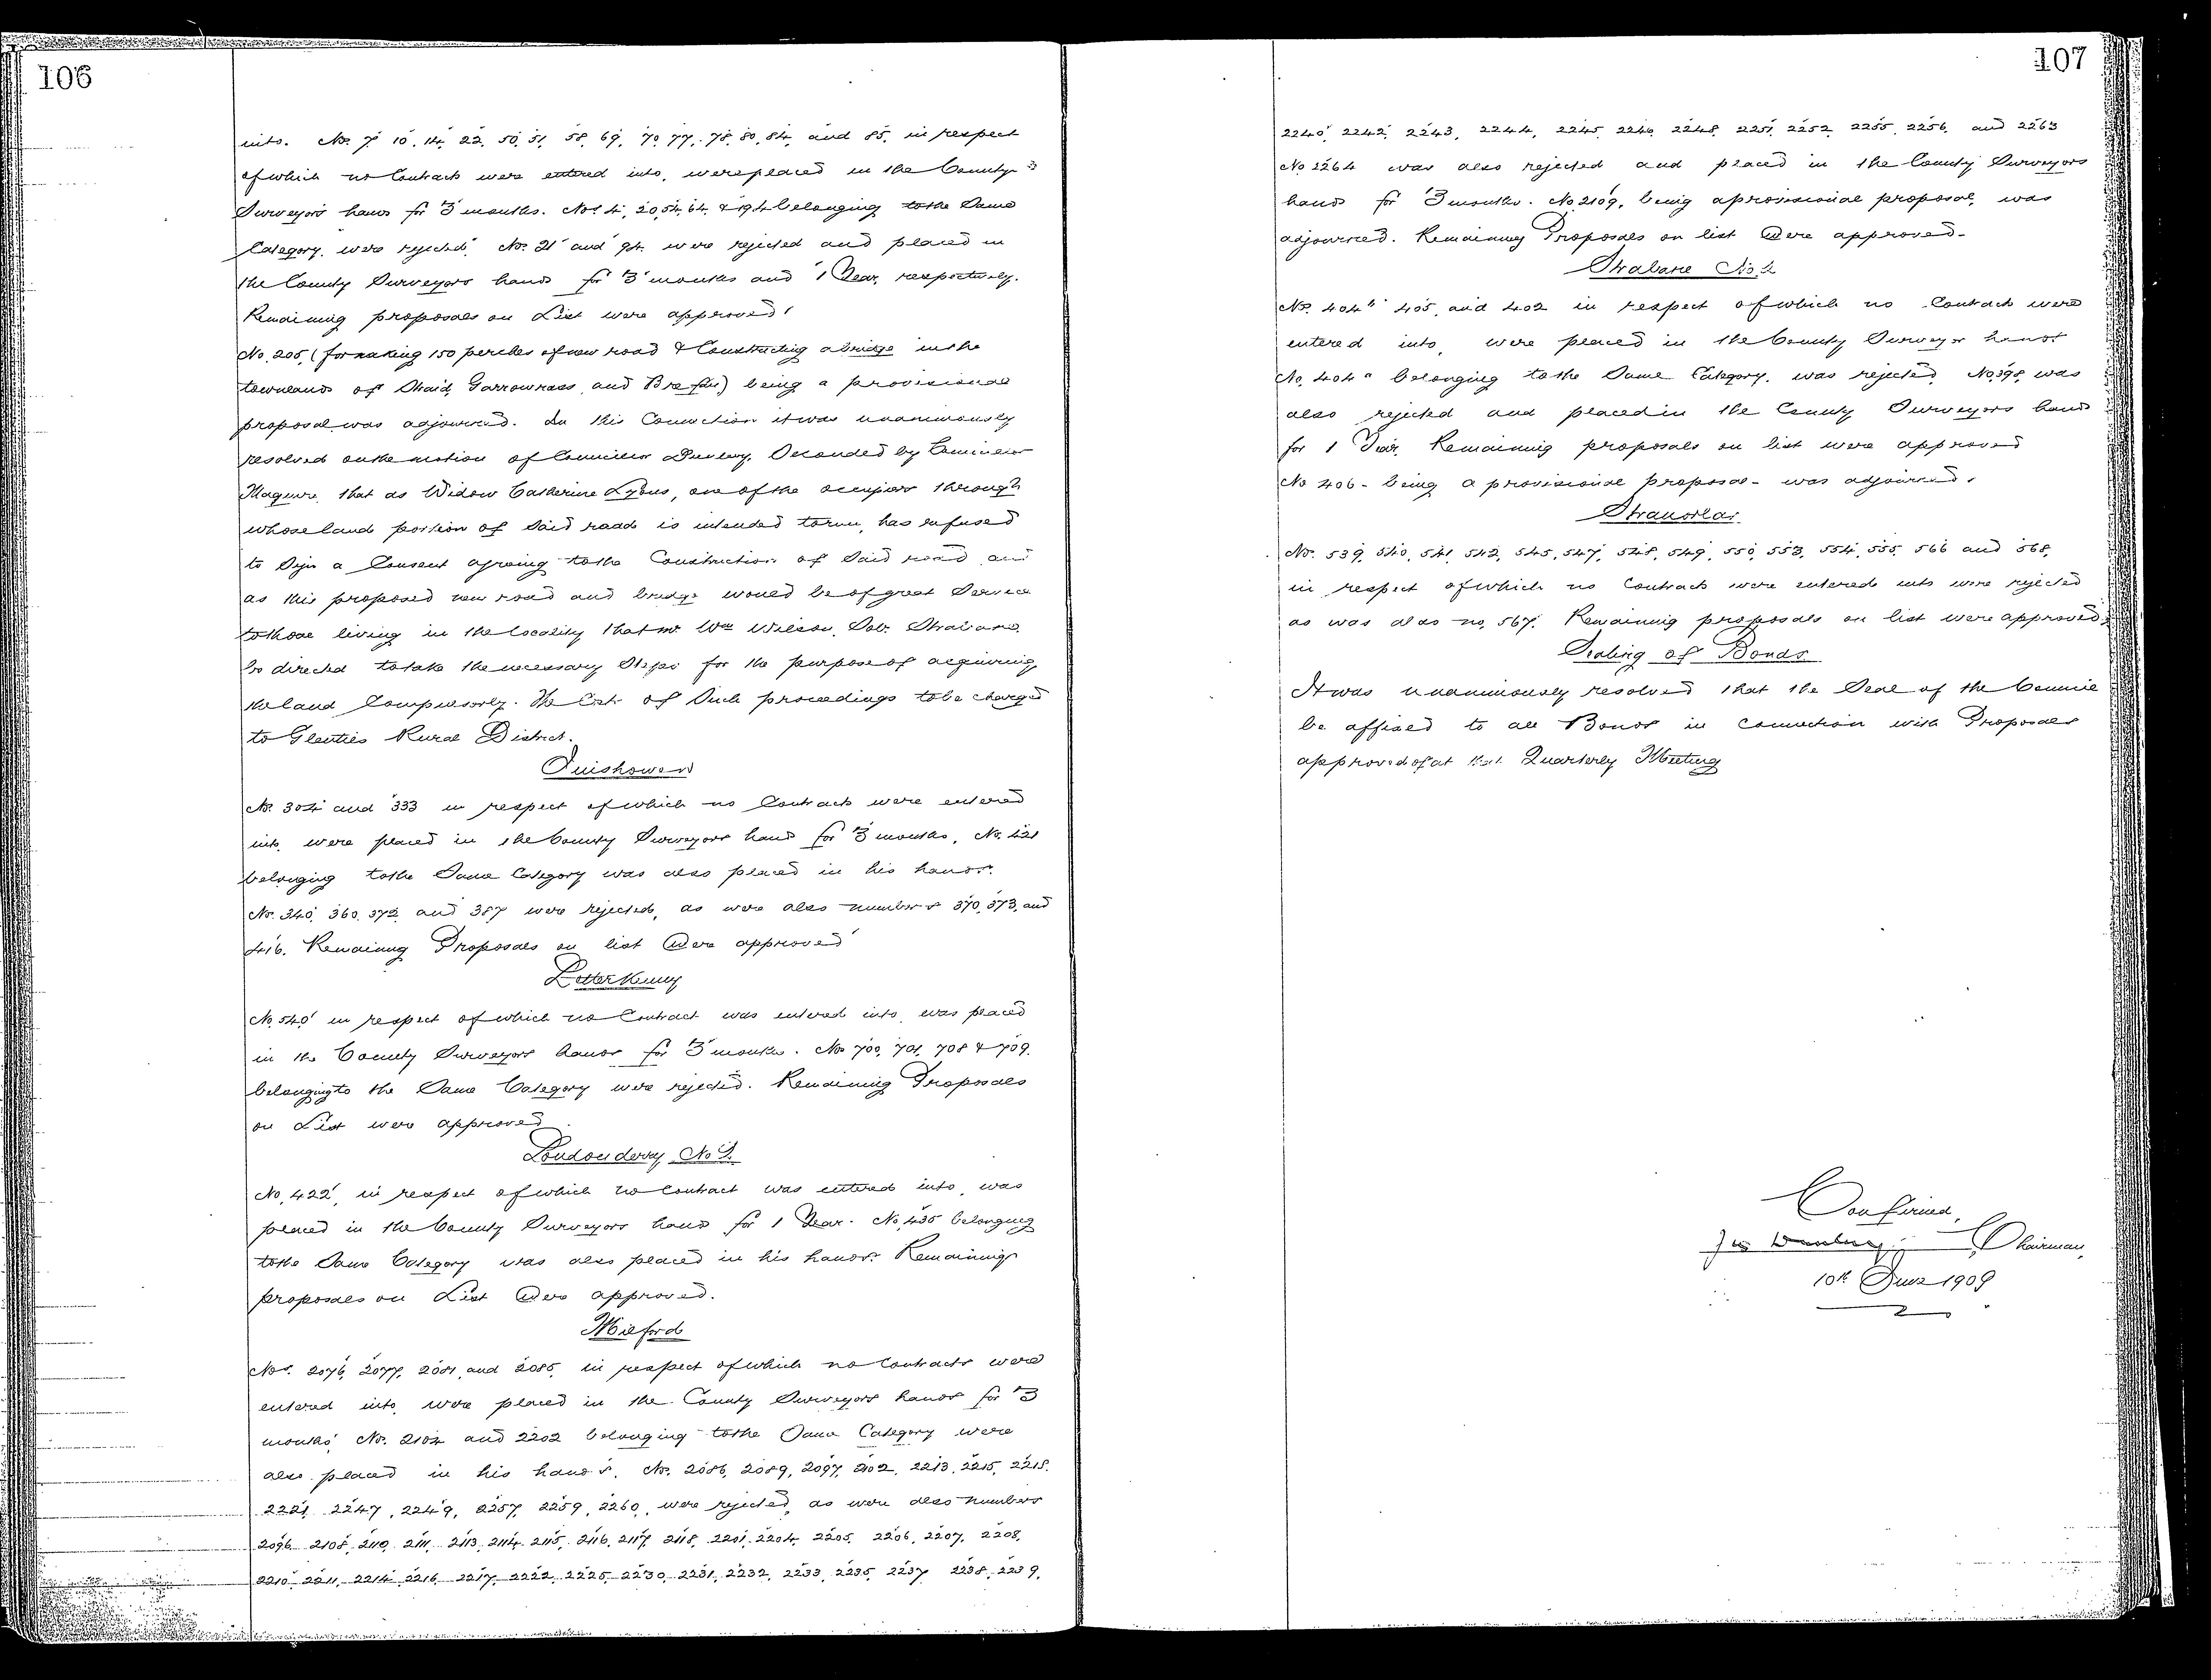 106
into. Nos. 7. 10. 14. 22. 50. 51. 58. 69. 70. 77. 78. 80. 84. and 85. in respect
of which no Contracts were entered into, were placed in the County
Surveyors hands for 3 months. Nos. 4, 20, 54, 64, & 194 belonging to the Same
Category, were rejected. Nos. 21 and 94 were rejected and placed in
the County Surveyors hands for 3 months and 1 Year, respectively.
Remaining proposals on List were approved.
No. 205, (for making 150 perches of new road & Constructing a bridge in the
townlands of Straid, and ) being a provisional
proposal was adjourned. In this Connection it was unanimously
resolved on the motion of Councillor Seconded by Councillor
Maguire, that as Widow Catherine Lyons, one of the occupiers through
whose land portion of Said road is intended to run, has refused
to Sign a Consent agreeing to the Construction of Said road and
as this proposed new road and bridge would be of great Service
to those living in the locality that Mr. Wm Wilson, Solr. Strabane
be directed to take the necessary Steps for the purpose of acquiring
the land Compulsorily. The Costs of Such proceedings to be charged
to Glenties Rural District.
Inishowen
Nos. 304 and 333 in respect of which no Contracts were entered
into were placed in the County Surveyors hands for 3 months, No. 421
belonging to the Same Category was also placed in his hands.
Nos. 340, 360, 372, and 387 were rejected, as were also numbers 370, 373, and
416. Remaining Proposals on list Were approved
Letterkenny
No. 540 in respect of which no Contract was entered into, was placed
in the County Surveyors hands for 3 months. Nos 700, 701, 708 & 709.
belonging to the Same Category were rejected. Remaining Proposals
on List were approved
Londonderry No 2.
No. 422, in respect of which no Contract was entered into, was
placed in the County Surveyors hands for 1 Year. No. 435 belonging
to the Same Category was also placed in his hands. Remaining
proposals on List Were approved.
Milford
Nos. 2076, 2077, 2081, and 2085, in respect of which no Contracts were
entered into, were placed in the County Surveyors hands for 3
months. Nos. 2104 and 2202 belonging to the Same Category were
also placed in his hands. Nos. 2086, 2089, 2097, 2102, 2213, 2215, 2218.
2221, 2247, 2249, 2257, 2259, 2260, were rejected, as were also numbers
2096, 2108, 2110, 2111, 2113, 2114, 2115, 2116, 2117, 2118, 2201, 2204, 2205, 2206, 2207, 2208,
2210, 2211, 2214, 2216, 2217, 2222, 2225, 2230, 2231, 2232, 2233, 2235, 2237, 2238, 2239,
107
2240, 2242, 2243, 2244, 2245, 2246, 2248, 2251, 2252, 2255, 2256, and 2263
No 2264 was also rejected and placed in the County Surveyors
hands for 3 months. No. 2109, being a provisional proposal, was
adjourned. Remaining Proposals on list Were approved.
Strabane No. 2
Nos. 404b 405, and 402 in respect of which no Contracts were
entered into, were placed in the County Surveyor hands
No. 404a belonging to the Same Category, was rejected, No. 398, was
also rejected and placed in the County Surveyors hands
for 1 Year. Remaining proposals on list were approved
No 406 - being a provisional proposal - was adjourned.
Stranorlar
Nos. 539, 540, 541, 542, 545, 547, 548, 549, 550, 553, 554, 555, 566 and 568,
in respect of which no Contracts were entered into were rejected
as was also no. 567. Remaining proposals on list were approved.
Sealing of Bonds
It was unanimously resolved that the Seal of the Council
be affixed to all Bonds in Connection with Proposals
approved of at that Quarterly Meeting
Confirmed,
Chairman,
10th June 1909